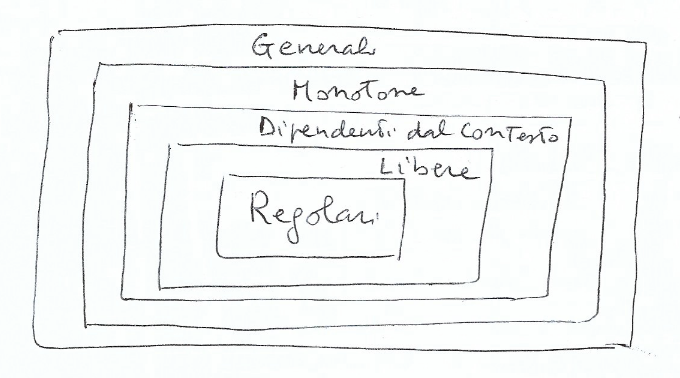 Generali
Monotone
Dipendenti dal contesto
Libere
Regolari